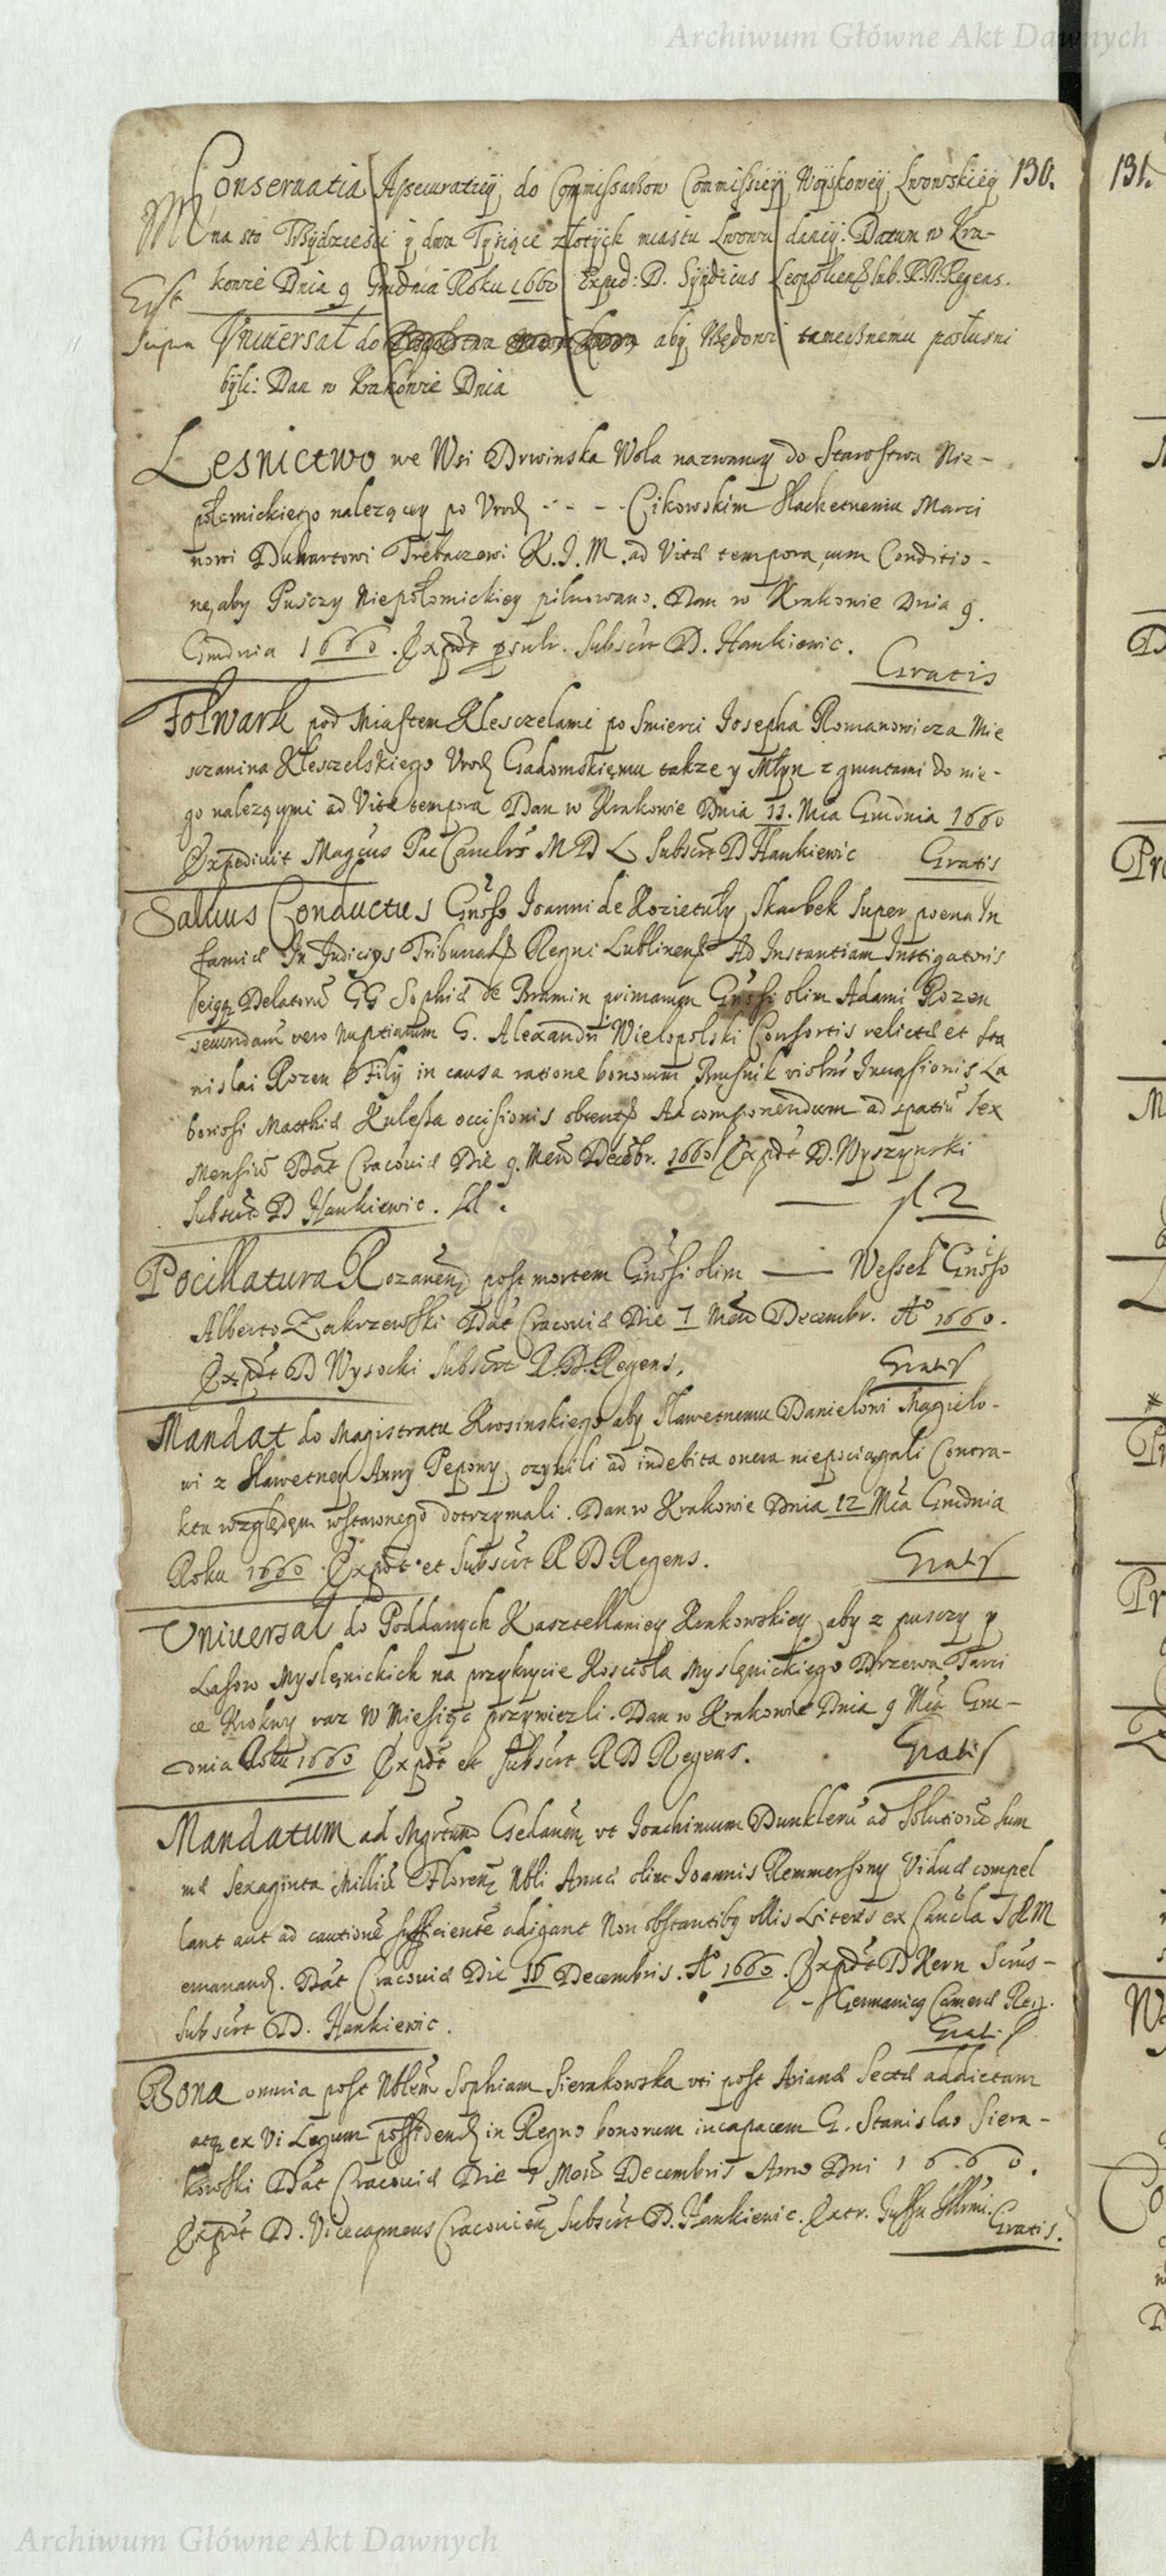 Archiwum Główne Akt Dawnych
Conseruatia Assecuratiey do Commissarzow Commissiey Woyskowey Lwowskiey 130.
na sto Trzydziesci y dwa Tysiące złotych miastu Lwowu daney. Datum w Kra-
kowie Dnia 9 Grudnia Roku 1660 Exped: D. Syndicus Leopolien sub. R.D. Regens.
Est
supra Vniuersał do aby Wędowi tamecznemu posłuszni
byli: Dan w Krakowie Dnia
Lesnictwo we Wsi Drwinska Wola nazwaney do Starostwa Nie-
połomickiego nalezącey po Vrod - - - - Cikowskim Slachetnemu Marci
nowi Duhartowi Trębaczowi K. J. M. ad Vitæ tempora, cum Conditio-
ne, aby Pusczy Niepołomickiey pilnowano. Dan w Krakowie Dnia 9.
Grudnia 1660. Expdt Subscrt D. Hankiewic.
Gratis
Folwark pod Miastem Klesczelami po Smierci Josepha Romanowicza Mie
sczanina Klesczelskiego Vrod Gadomskiemu takze y Młyn z gruntami do nie-
go nalezącymi ad Vitæ tempora Dan w Krakowie Dnia 11. Mca Grudnia 1660
Expediuit Magcus Pac Canclrs M D L Subscrt D Hankiewic Gratis
Saluus Conductus Gnoso Joanni de Kozietuły Skarbek super poena In
famiæ In Judicijs Tribunal Regni Lublinen Ad Instantiam Instigatoris
eiq Delatorũ GG Sophiæ de Bramin primarum Gnosi olim Adami Rozen
secundarũ vero Nuptiarum G. Alexandri Wielopolski Consortis relictæ et Sta
nislai Rozen Filij in causa ratione bonorum Brusnik Inuasionis La
boriosi Matthiæ Kulesza occisionis obtent Ad componendum ad spatiũ sex
Mensiũ Dat Cracouiæ Die 9. Mens Decebr. 1660 Expdt D. Wyszynski
Subscrt D Hankiewic. Sd. — fl 2
Pocillatura Rozanen post mortem Gnosi olim —— Wessel Gnoso
Alberto Zakrzewski Dat Cracouiæ Die 7 Mens Decembr. Ao 1660.
Expdt D Wysocki Subscrt R. D. Regens. Gratis
Mandat do Magistratu Krosinskiego aby Sławetnemu Danielowi Magielo-
wi z Sławetney Anny Pepony, czynili ad indebita onera niepociągali Contra-
ktu względem dotrzymali. Dan w Krakowie Dnia 12 Mca Grudnia
Roku 1660. Expdt et Subscrt R D Regens. Gratis
Vniuersał do Poddanych Kasztellaniey Krakowskiey aby z pusczy y
Lasow Myslęnickich na przykrycie Kosciola Myslęnickiego Drzewa Tarci
ce Krokwy raz W Miesiąc przywiezli. Dan w Krakowie Dnia 9 Mca Gru-
dnia Roku 1660 Expdt et subscrt R D Regens. Gratis
Mandatum ad Mgrtum Gedanen vt Joachimum Dunklerũ ad solutionẽ sum
mæ sexaginta Milliũ Floren Nbli Annæ olim Joannis Remmersony Viduæ compel
lant aut ad cautionẽ sufficientẽ adigant Non obstantibq vllis Literis ex Cancla S R M
emanand. Dat Cracouiæ Die 16 Decembris. Ao 1660. Expdt D Hern Scrus-
- Germanicq Cameræ Reg.
Subscrt D. Hankiewic. Gratis
Bona omnia post Nblem Sophiam Sierakowska vti post Arianæ Sectæ addictam
atq ex Vi Legum possidend in Regno bonorum incapacem G. Stanislao Siera-
kowski Dat Cracouiæ Die 7 Mens Decembris Anno Dni 1660.
Expdt D. Vicecapneus Cracouien Subscrt D. Hankiewic. Extr. Jussu Illrmi.
Gratis.
131.
Archiwum Główne Akt Dawnych